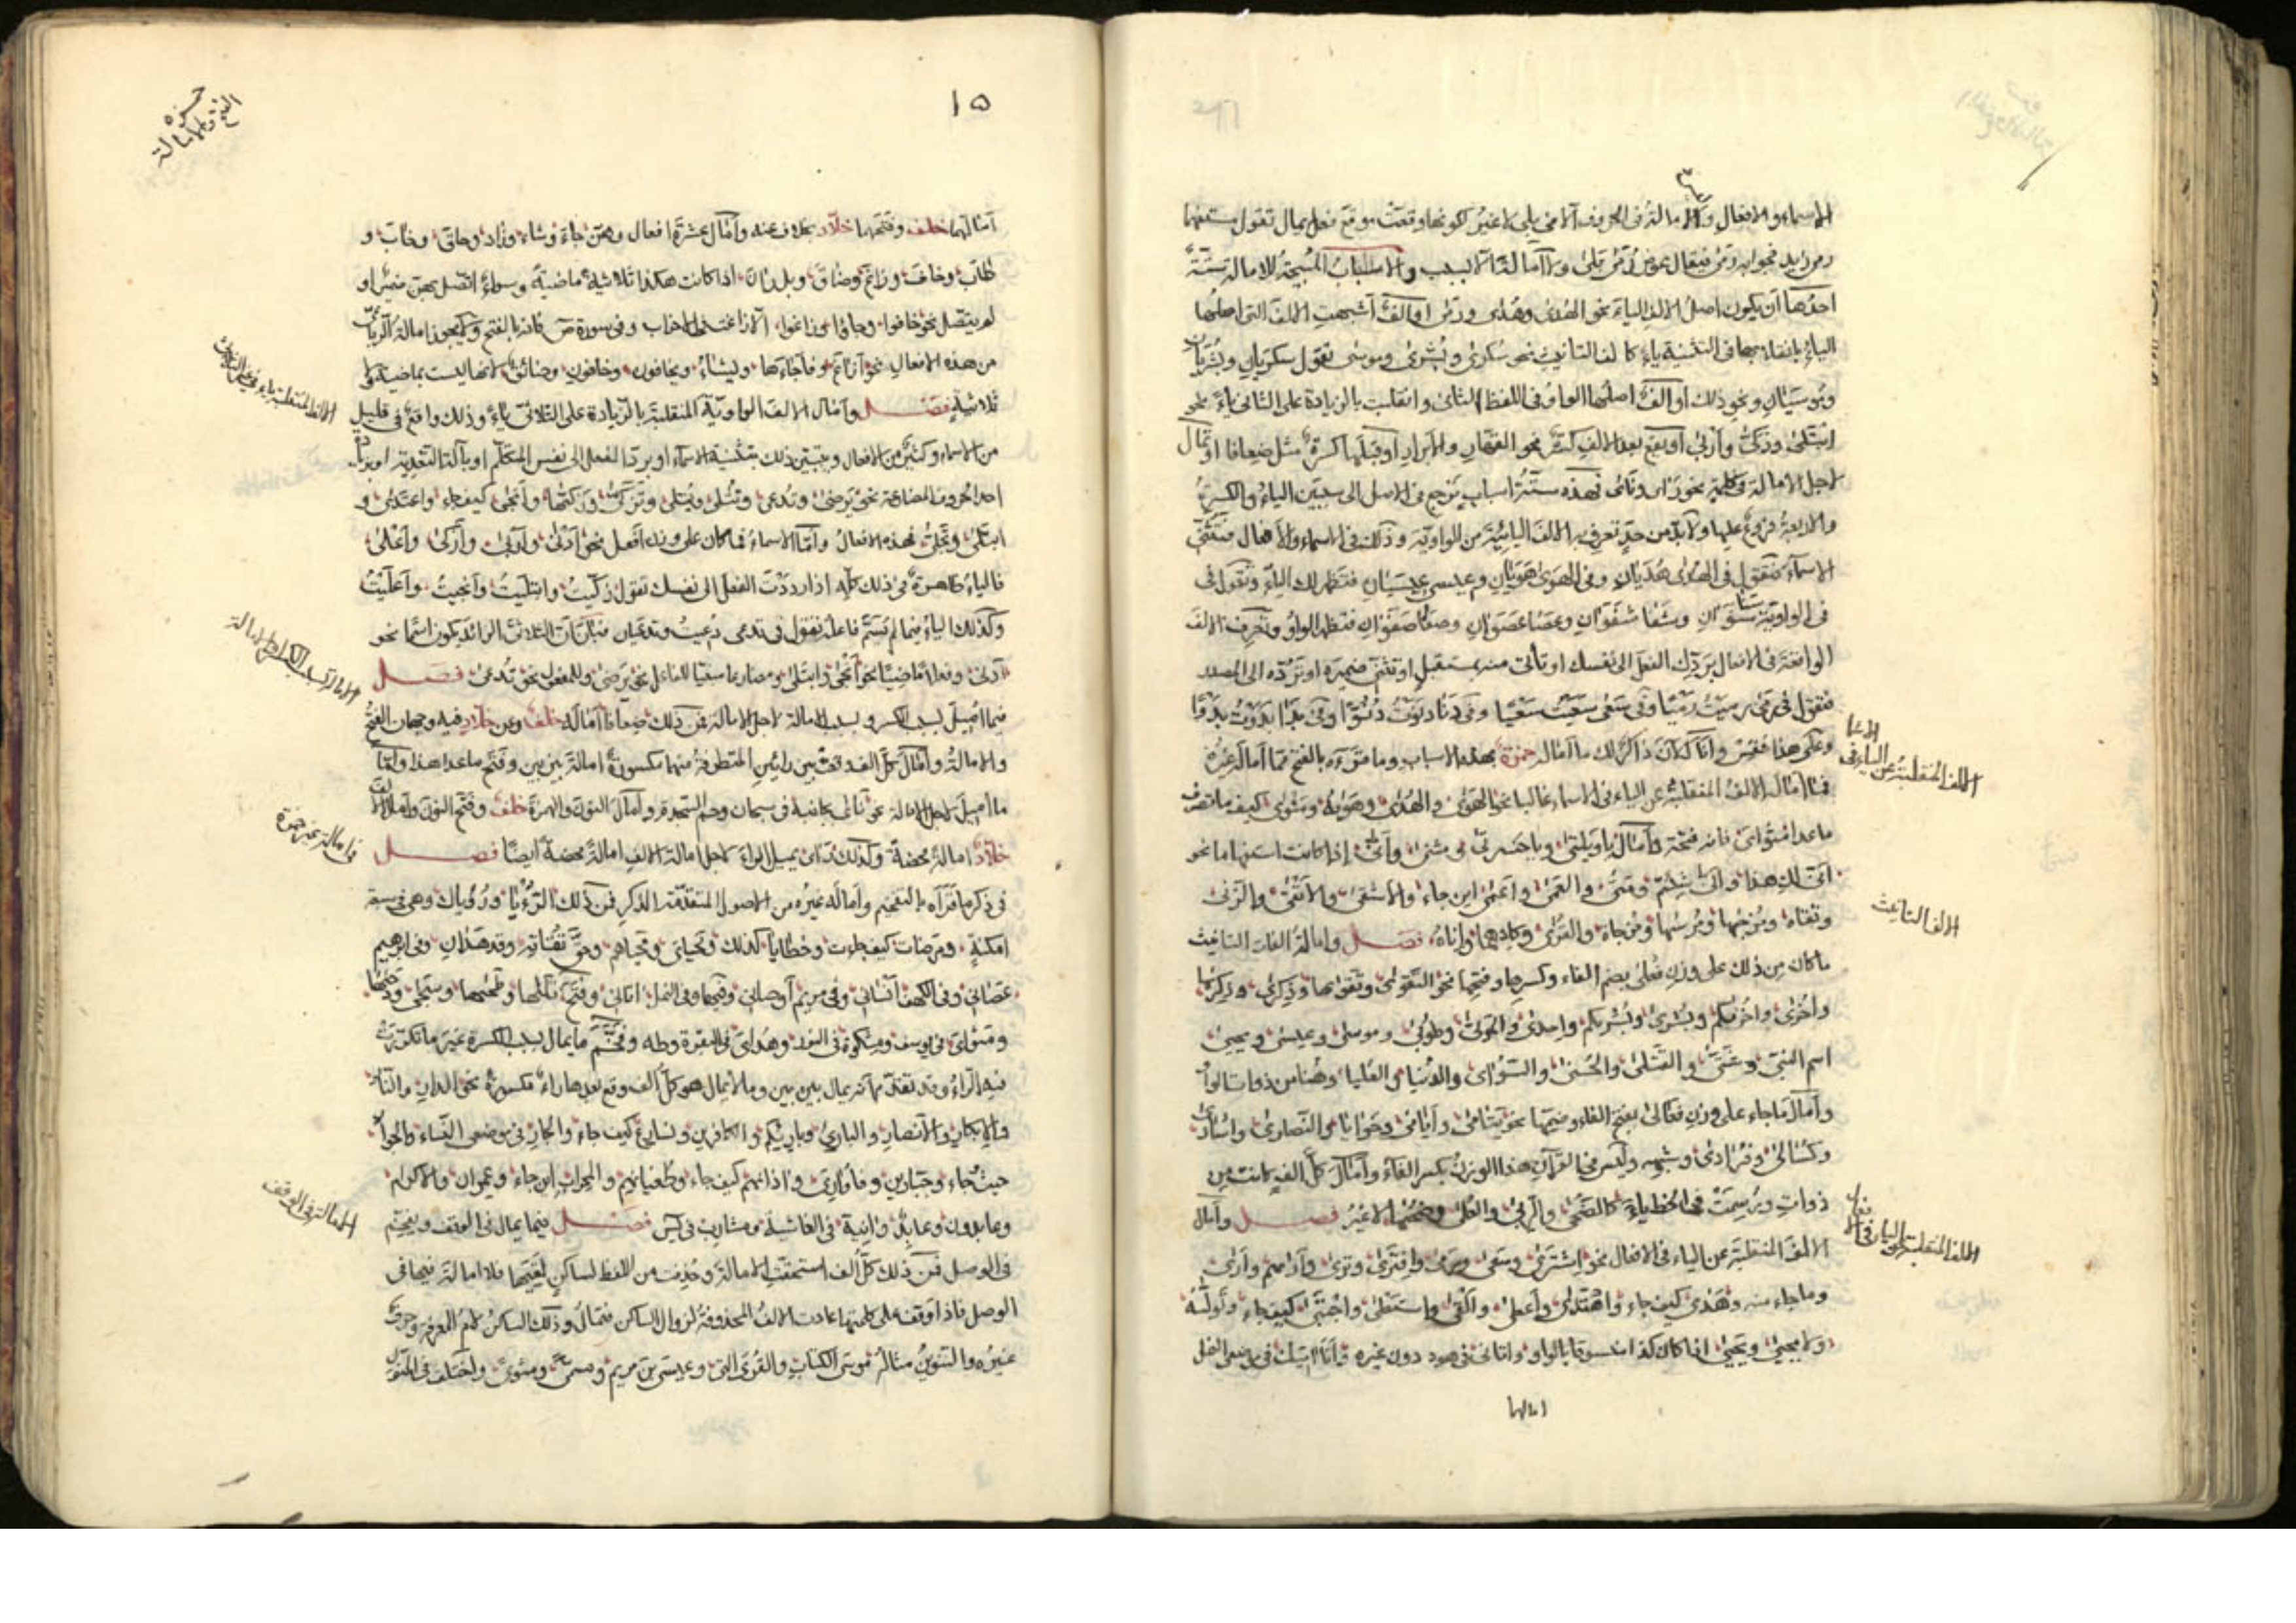 الاسماء والافعال والامالة في الحروف الا في بلى لا غير لكونها وقعت موقع فعل يمال تقول مستفهما
احدها ان يكون اصل الالف الياء نحو الهدى وهدى ورمى او الف اشبهت الالف التي اصلها
الياء بانقلابها في التثنية ياء كالف التانيث نحو سكرى وبشرى وموسى تقول سكريان وبشريان
وموسيان ونحو ذلك او الف اصلها الواو في اللفظ الثاني وانقلبت بالزيادة على الثاني ياء نحو
ابتلى وزكى وأربى او يقع بعد الالف كسرة نحو الفخار والابرار او قبلها كسرة مثل ضعافا او تمال
لاجل الامالة في كلمة نحو راى ونأى فهذه ستة اسباب ترجع في الاصل الى سببين الياء والكسرة
والاربعة فروع عليها ولا بد من حد تعرف به الالف اليائية من الواوية وذلك في الاسماء والافعال فتثني
الاسماء فتقول في الهدى هديان وفي الهوى هويان وعيسى عيسيان فتظهر لك الياء وتقول في
في الواوية سنا سنوان وشفا شفوان وعصا عصوان وصفا صفوان فتظهر الواو وتعرف الالف
الواقعة في الافعال بردك الفعل الى نفسك او تأتي منه بمستقبل او تثني ضميره او ترده الى المصدر
فتقول في رمى رميت رميا وفي سعى سعيت سعيا وفي دنا دنوت دنوا وفي بدا بدوت بدوا
وعلى هذا فقس وانا الآن ذاكر لك ما اماله حمزة بهذه الاسباب وما قرأه بالفتح مما أماله غيره
فمما امال الالف المنقلبة عن الياء في الاسماء غالبا نحو الهوى والهدى وهويه ومثوى كيف ما تصرف
ماعدا مثواي فانه فتحه وامال يا ويلتى ويا حسرتى و مثنى وأنى اذا كانت استفهاما نحو
انى لك هذا وانى شئتم ومتى والعمى واعمى اين جاء والاشقى والاتقى والزنى
وتقاة ومزجاها ومرسيها ومزجاة والقرى وكلاهما واناه فصل وامالة الفات التانيث
ما كان من ذلك على وزن فعلى بضم الفاء وكسرها وفتحها نحو التقوى وتقواها وذكرى وذكريها
واخرى واخريكم وبشرى وبشريكم واحدى والموتى وطوبى وموسى وعيسى ويحيى
اسم النبي وشتى والقتلى والحسنى والسوأى والدنيا والعليا وهنا من ذوات الواو
وأمال ما جاء على وزن فعالى بفتح الفاء وضمها نحو يتامى وايامى وحوايا والنصارى واسارى
وكسالى وفرادى وشبهه وليس في القرآن هذا الوزن بكسر الفاء وأمال كل الف كانت من
ذوات ورسمت في الخط ياء كالضحى والربى والعلى وضحيها لا غير فصل وأمال
الالف المنقلبة عن الياء في الافعال نحو اشترى وسعى ورمى وافترى وترى وأراهم وأرى
وما جاء منه وهدى كيف جاء واهتدى وأعطى والقى واستغنى واجتبى كيف جاء وتولى
ولا يحيى ويحيى اذا كان كذا منسوقا بالواو واتانى في هود دون غيره وانا اتيك في موضعي النمل
امالها
الالف المنقلبة عن الياء في الاسما
الالف التانيث
الالف المنقلبة عن الياء في الافعال
١٥
حمزة
الفتح والامالة
امالهما خلف وفتحهما خلاد بخلاف عنه وأمال عشرة افعال وهن جاء وشاء وزاد وحاق وخاب و
طاب وخاف وزاغ وضاق وبل ران اذا كانت هكذا ثلاثية ماضية وسواء اتصل بهن ضمير او
لم يتصل نحو خافوا وجاؤا وزاغوا الا زاغت في الاحزاب وفي سورة ص فانه بالفتح ولا يجوز امالة الرباعي
من هذه الافعال نحو ازاغ وفأجاءها ويشاء ويخافون وخافون وضائق لانها ليست بماضية ولا
ثلاثية فصل وأمال الالف الواوية المنقلبة بالزيادة على الثلاثي ياء وذلك واقع في قليل
من الاسماء وكثير من الافعال ويتبين ذلك بتثنية الاسماء او برد الفعل الى نفس المتكلم او بآلة التعدية او بزيادة
احد احرف المضارعة نحو يرضى وتدعى وتتلى ويتلى وتزكى وزكيها وانجى كيف جاء واعتدى و
ابتلى وتجلى فهذه الافعال واما الاسماء فما كان على وزن افعل نحو أدنى وأربى وأزكى وأعلى
فالياء ظاهرة في ذلك كله اذا رددت الفعل الى نفسك تقول زكيت وابتليت وأنجيت وأعليت
وكذلك الياء فيما لم يسم فاعله تقول في تدعى دعيت وتدعيان فبان ان الثلاثي الزائد يكون اسما نحو
أدنى وفعلا ماضيا نحو أنجى وابتلى ومضارعا مبنيا للفاعل نحو يرضى وللمفعول نحو تدعى فصل
فيما أميل لسبب الكسر وبسبب الامالة لاجل الامالة فمن ذلك ضعافا أماله خلف وعن خلاد فيه وجهان الفتح
والامالة وأمال كل الف وقعت بين رائين المتطرفة منهما مكسورة امالة بين بين وفتح ما عدا هذا واما
ما أميل لاجل الامالة نحو نأى بجانبه في سبحان وحم السجدة وأمال النون والهمزة خلف وفتح النون وأمال الالف
خلاد امالة محضة وكذلك راى يميل الراء لاجل امالة الالف امالة محضة ايضا فصل
في ذكر ما قرأه بالتفخيم وأماله غيره من الاصول المتقدمة الذكر فمن ذلك الرؤيا ورؤياك وهي في ستة
امكنة ومرضات كيف جاءت وخطايا كذلك ومحياي ومحياهم وحق تقاته وقد هدان وفي ابرهيم
عصاني وفي الكهف انسانيه وفي مريم أوصاني وفيها وفي النمل اتاني وفتح تلاها وطحيها وسجى ودحيها
ومثواي في يوسف ومشكوة في النور وهداي في البقرة وطه وفخم ما يمال لسبب الكسرة غير ما تكررت
فيه الراء وقد تقدم انه يمال بين بين وما لا يمال هو كل الف وقع بعدها راء مكسورة نحو الدار والنار
والابكار والانصار والبارئ وبارئكم والكافرين ونسارع كيف جاء والجار في موضعي النساء والجوار
حيث جاء وجبارين وفأواري واذانهم كيف جاء وطغيانهم والمحراب اين جاء وعمران والاكرام
وعابدون وعابد وآنية في الغاشية ومشارب في يس فصل فيما يمال في الوقف ويفخم
في الوصل فمن ذلك كل الف استحقت الامالة وحذفت من اللفظ لساكن لقيها فلا امالة فيها في
الوصل فاذا وقف على كلمتها عادت الالف المحذوفة لزوال الساكن فتمال وذلك الساكن لام المعرفة وحرف
غيره والتنوين مثاله موسى الكتاب والقرى التي وعيسى بن مريم ومسمى ومثوى واختلف في المنون
الالف المنقلبة ياء
الامالة لسبب الكسر او الامالة
في امالة غير حمزة
الامالة في الوقف